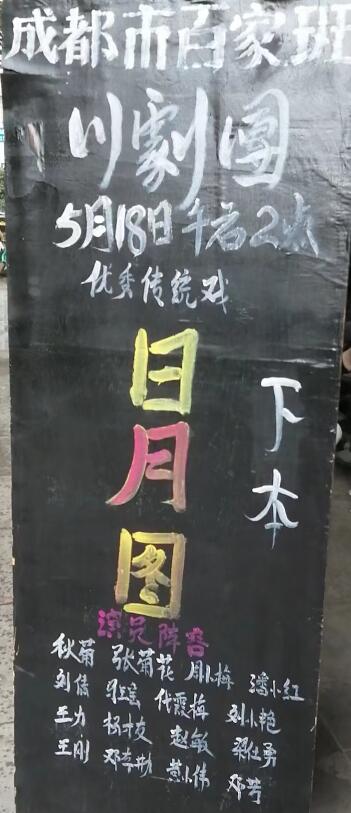 成都市百家班
川劇團
5月18日午后2点
优秀传统戏
日月图
下本
演员阵容
秋菊 张菊花 周小梅 潘小红
刘倩 代霞梅 刘小艳
王力 杨十友 赵敏 梁仕勇
王刚 小伟 邓芳